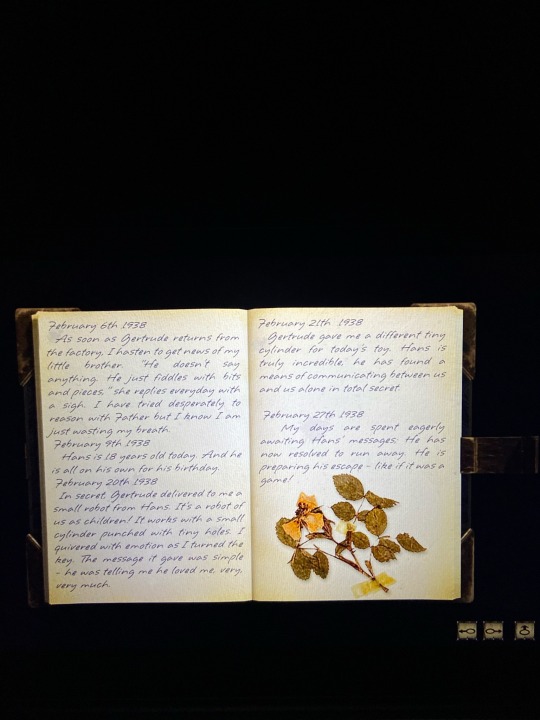 February 6th 1938
As soon as Gertrude returns from
the factory, I hasten to get news of my
little brother. "He doesn't say
anything. He just fiddles with bits
and pieces." she replies everyday with
a sigh. I have tried desperately to
reason with Father but I know I am
just wasting my breath.
February 9th 1938
Hans is 18 years old today. And he
is all on his own for his birthday.
February 20th 1938
In secret, Gertrude delivered to me a
small robot from Hans. It's a robot of
us as children! It works with a small
cylinder punched with tiny holes. I
quivered with emotion as I turned the
key. The message it gave was simple
- he was telling me he loved me, very,
very much.
February 21th 1938
Gertrude gave me a different tiny
cylinder for today's toy. Hans is
truly incredible, he has found a
means of communicating between us
and us alone in total secret.
February 27th 1938
My days are spent eagerly
awaiting Hans' messages: He has
now resolved to run away. He is
preparing his escape - like if it was a
game!